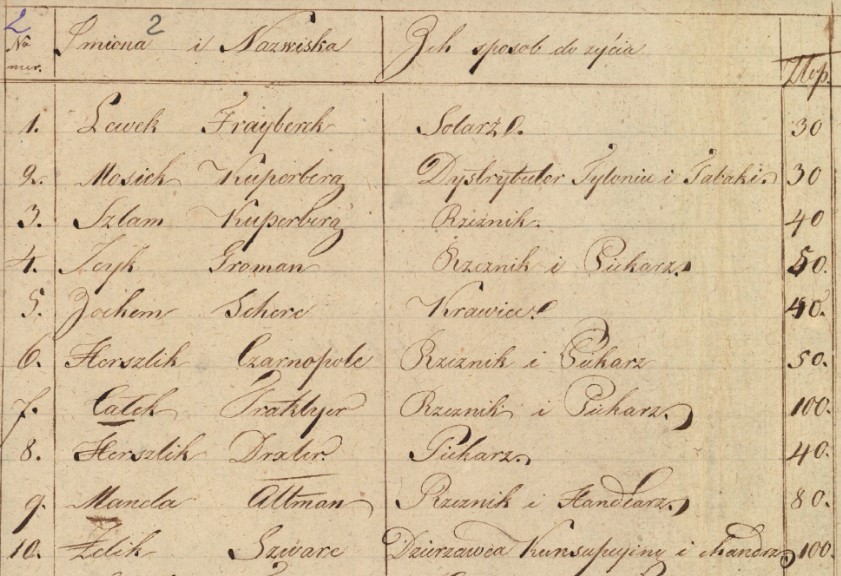 2 2
No Imiona i Nazwiska Ich sposob do zycia
mer. Złop.
1. Lewek Frayberek Solarz. 30
2. Mosiek Kuperberg Dystrybutor Tytoniu i Tabaki. 30
3. Szlam Kuperberg Rzeznik. 40
4. Icyk Groman Rzeznik i Piekarz. 50.
5. Jochem Scherc Krawiec. 40.
6. Herszlik Czarnopole Rzeznik i Piekarz 50.
7. Całek Traktyer Rzeznik i Piekarz. 100.
8. Herszlik Drxler. Piekarz. 40.
9. Manela Altman Rzeznik i Handlarz. 80.
10. Zelik Szwarc Dzierzawca Konsupcyiny i 100.